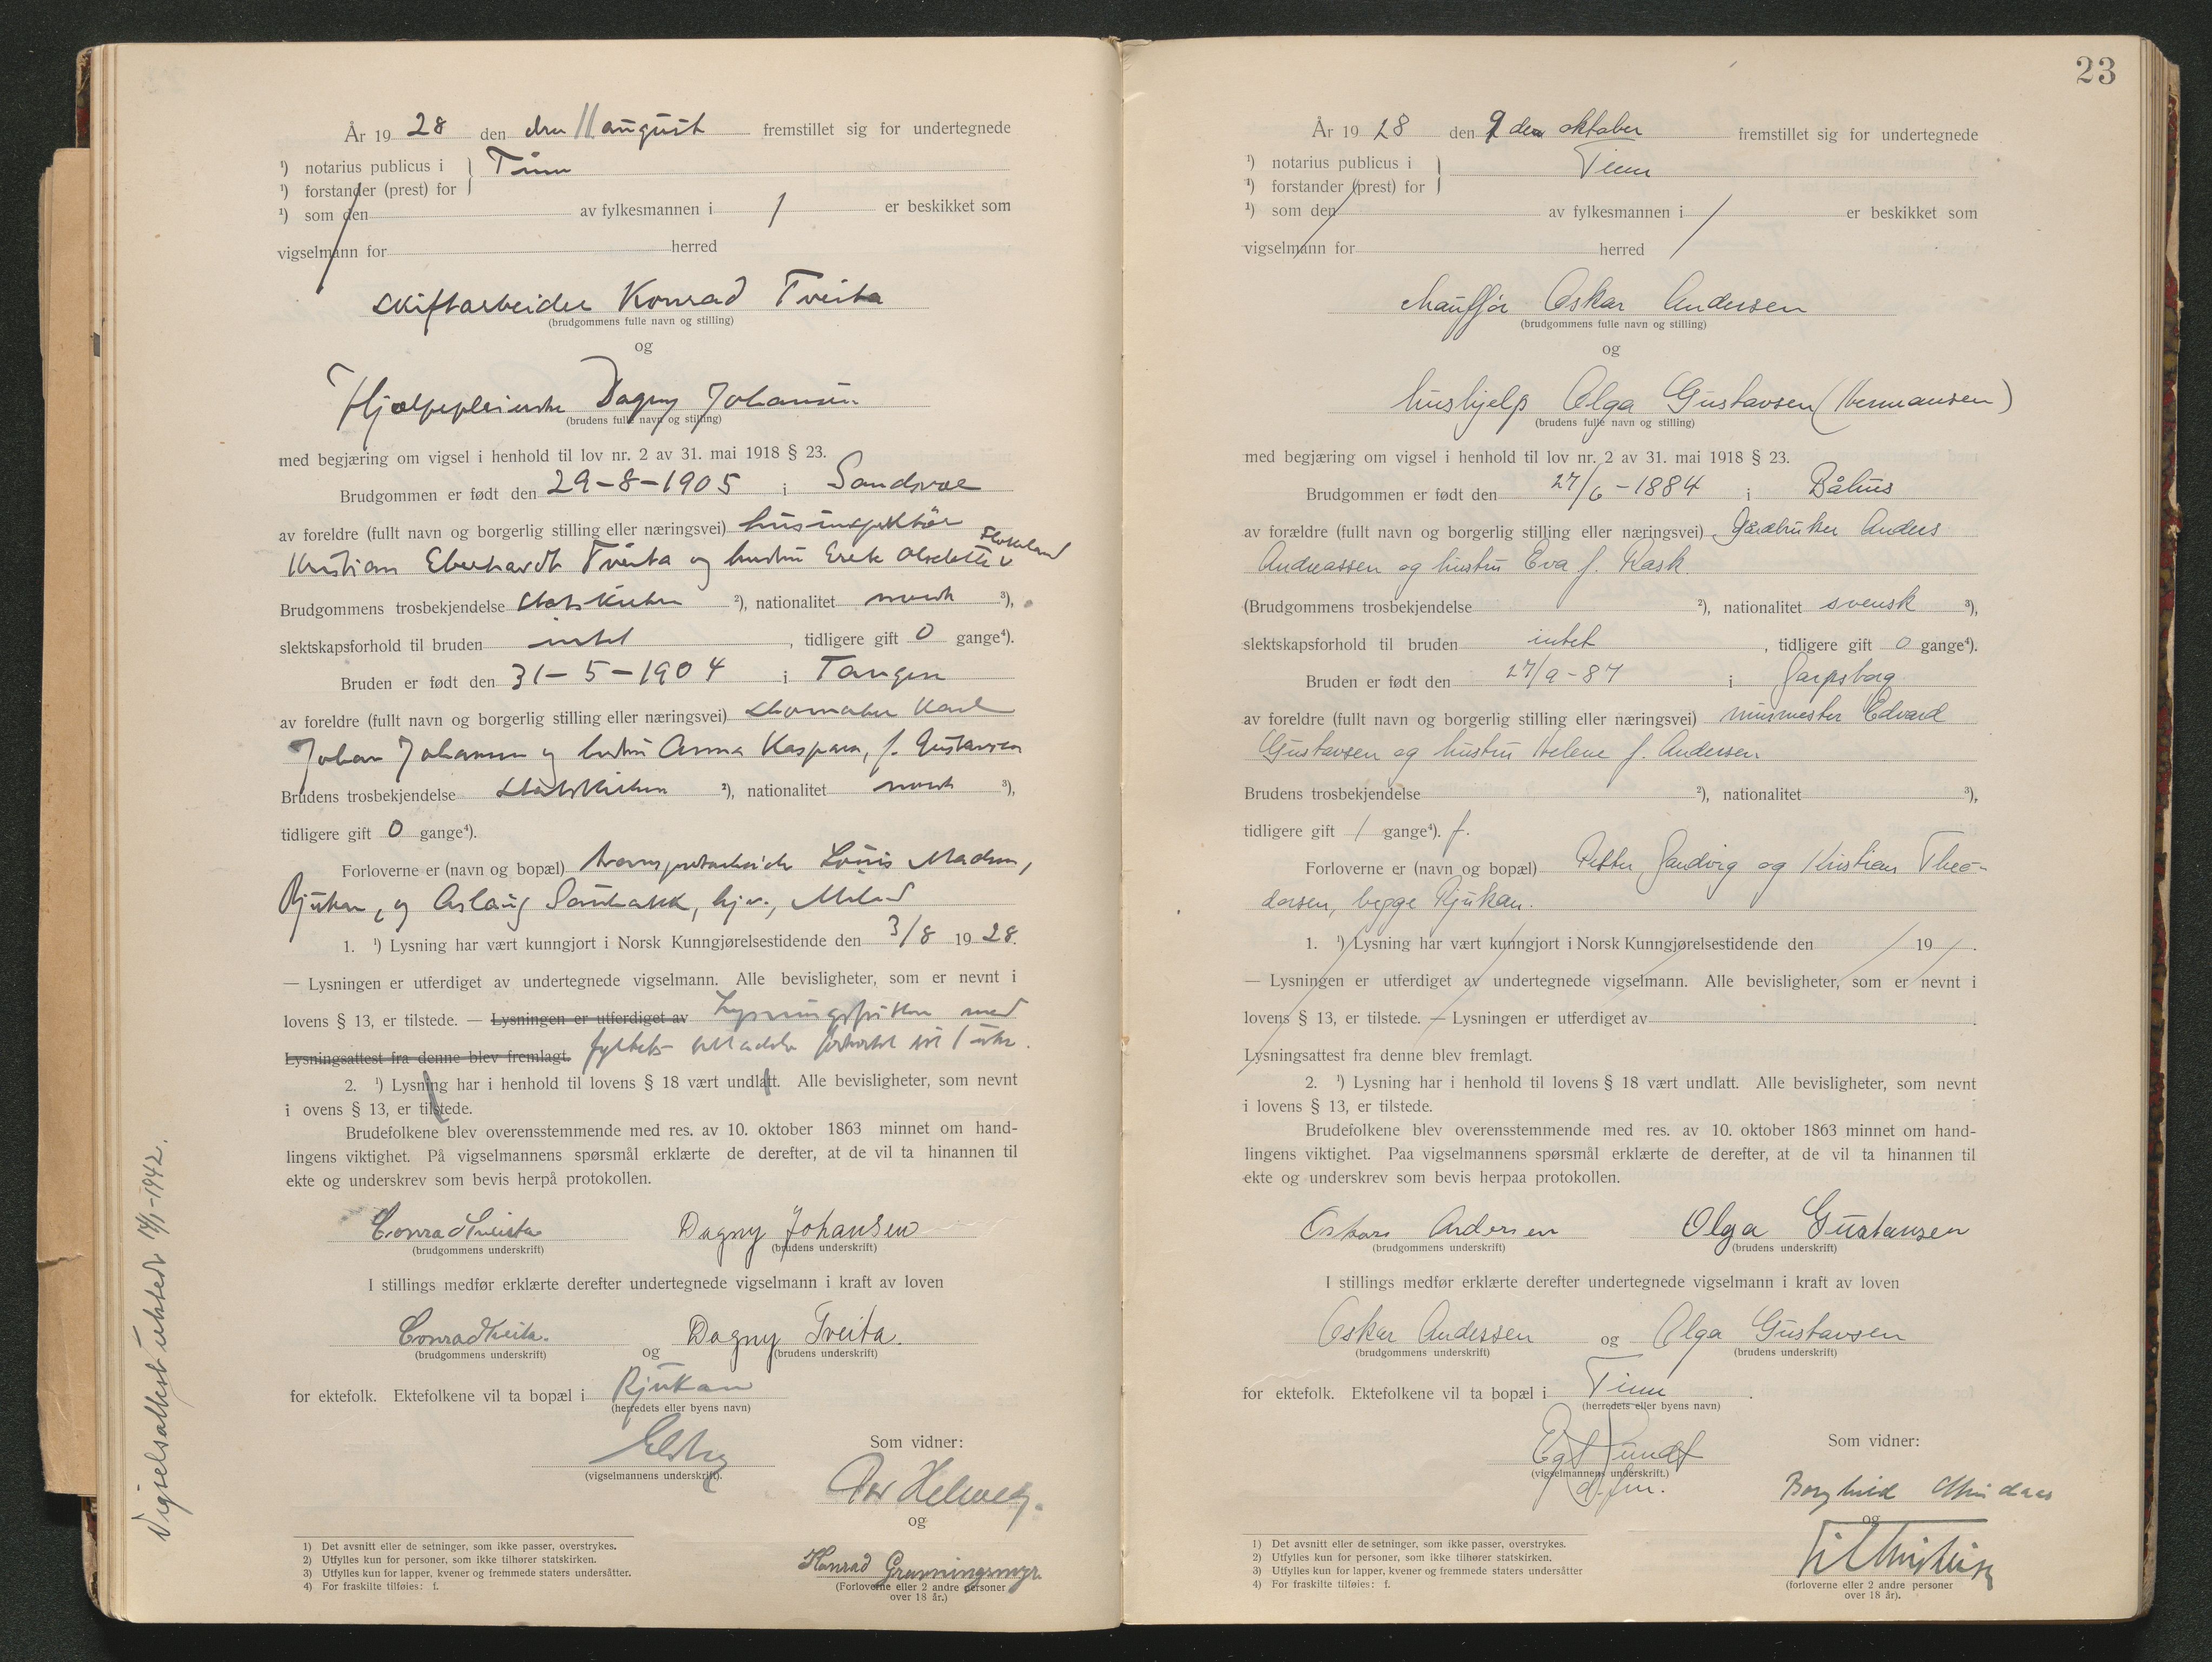 År 1928 den den 11 august fremstillet sig for undertegnede
¹) notarius publicus i } Tinn
¹) forstander (prest) for
¹) som den av fylkesmannen i / er beskikket som
vigselmann for herred
skiftarbeider Konrad Tveita
(brudgommens fulle navn og stilling)
og
Hjælpepleierske Dagny Johansen
(brudens fulle navn og stilling)
med begjæring om vigsel i henhold til lov nr. 2 av 31. mai 1918 § 23.
Brudgommen er født den 29-8-1905 i
av foreldre (fullt navn og borgerlig stilling eller næringsvei) husinspektør
Kristian Eberhardt Tveita og hustru
Brudgommens trosbekjendelse Statskirken ²), nationalitet norsk ³),
slektskapsforhold til bruden intet, tidligere gift 0 gange⁴).
Bruden er født den 31-5-1904 i Tangen
av foreldre (fullt navn og borgerlig stilling eller næringsvei) skomaker Karl
Johan Johansen og hustru Anna Kaspara, f. Gustavsen
Brudens trosbekjendelse Statskirken ²), nationalitet norsk ³),
tidligere gift 0 gange⁴).
Forloverne er (navn og bopæl) transportarbeider Louis Madsen,
Rjukan, og Aslaug
1. ¹) Lysning har vært kunngjort i Norsk Kunngjørelsestidende den 3/8 1928.
— Lysningen er utferdiget av undertegnede vigselmann. Alle bevisligheter, som er nevnt i
lovens § 13, er tilstede. — Lysningen er utferdiget av Lysningsfristen med
Lysningsattest fra denne blev fremlagt. fylkets tilladelse forkortet til 1 uke.
2. ¹) Lysning har i henhold til lovens § 18 vært undlatt. Alle bevisligheter, som nevnt
i ovens § 13, er tilstede.
Brudefolkene blev overensstemmende med res. av 10. oktober 1863 minnet om hand-
lingens viktighet. På vigselmannens spørsmål erklærte de derefter, at de vil ta hinannen til
ekte og underskrev som bevis herpå protokollen.
Conrad Tveita Dagny Johansen
(brudgommens underskrift) (brudens underskrift)
I stillings medfør erklærte derefter undertegnede vigselmann i kraft av loven
Conrad Tveita. og Dagny Tveita.
(brudgommens underskrift) (brudens underskrift)
for ektefolk. Ektefolkene vil ta bopæl i Rjukan
(herredets eller byens navn)
(vigselmannens underskrift).
Som vidner:
Per Helweg.
og
Konrad Grønningsmyr.
(Forloverne eller 2 andre personer
over 18 år.)
1) Det avsnitt eller de setninger, som ikke passer, overstrykes.
2) Utfylles kun for personer, som ikke tilhører statskirken.
3) Utfylles kun for lapper, kvener og fremmede staters undersåtter.
4) For fraskilte tilføies: f.
Vigselsattest utstedt 14/1-1942.
23
År 1928 den 9 den oktober fremstillet sig for undertegnede
¹) notarius publicus i } Tinn
¹) forstander (prest) for
¹) som den av fylkesmannen i / er beskikket som
vigselmann for herred
chauffør Oskar Andersen
(brudgommens fulle navn og stilling)
og
hushjelp Olga Gustavsen (Hermansen)
(brudens fulle navn og stilling)
med begjæring om vigsel i henhold til lov nr. 2 av 31. mai 1918 § 23.
Brudgommen er født den 27/6-1884 i Båhus
av forældre (fullt navn og borgerlig stilling eller næringsvei) Gårdbruker Anders
Andreassen og hustru Eva f. Rask.
(Brudgommens trosbekjendelse ²), nationalitet svensk ³),
slektskapsforhold til bruden intet, tidligere gift 0 gange⁴).
Bruden er født den 27/9-87 i Sarpsborg
av foreldre (fullt navn og borgerlig stilling eller næringsvei) murmester Edvard
Gustavsen og hustru Helene f. Andersen
Brudens trosbekjendelse ²), nationalitet ³),
tidligere gift 1 gange⁴). f.
Forloverne er (navn og bopæl) Petter Sandvig og Kristian Theo-
dorsen, begge Rjukan.
1. ¹) Lysning har vært kunngjort i Norsk Kunngjørelsestidende den / 19 /.
— Lysningen er utferdiget av undertegnede vigselmann. Alle bevisligheter, som er nevnt i
lovens § 13, er tilstede. — Lysningen er utferdiget av
Lysningsattest fra denne blev fremlagt.
2. ¹) Lysning har i henhold til lovens § 18 vært undlatt. Alle bevisligheter, som nevnt
i lovens § 13, er tilstede.
Brudefolkene blev overensstemmende med res. av 10. oktober 1863 minnet om hand-
lingens viktighet. Paa vigselmannens spørsmål erklærte de derefter, at de vil ta hinannen til
ekte og underskrev som bevis herpaa protokollen.
Oskar Andersen Olga Gustavsen
(brudgommens underskrift) (brudens underskrift)
I stillings medfør erklærte derefter undertegnede vigselmann i kraft av loven
Oskar Andersen og Olga Gustavsen
(brudgommens underskrift) (brudens underskrift)
for ektefolk. Ektefolkene vil ta bopæl i Tinn.
(herredets eller byens navn)
(vigselmannens underskrift.)
d. fm.
Som vidner:
Borghild
og
(forloverne eller 2 andre personer
over 18 år).
1) Det avsnitt eller de setninger, som ikke passer, overstrykes.
2) Utfylles kun for personer, som ikke tilhører statskirken.
3) Utfylles kun for lapper, kvener og fremmede staters undersåtter
4) For fraskilte tilføies: f.